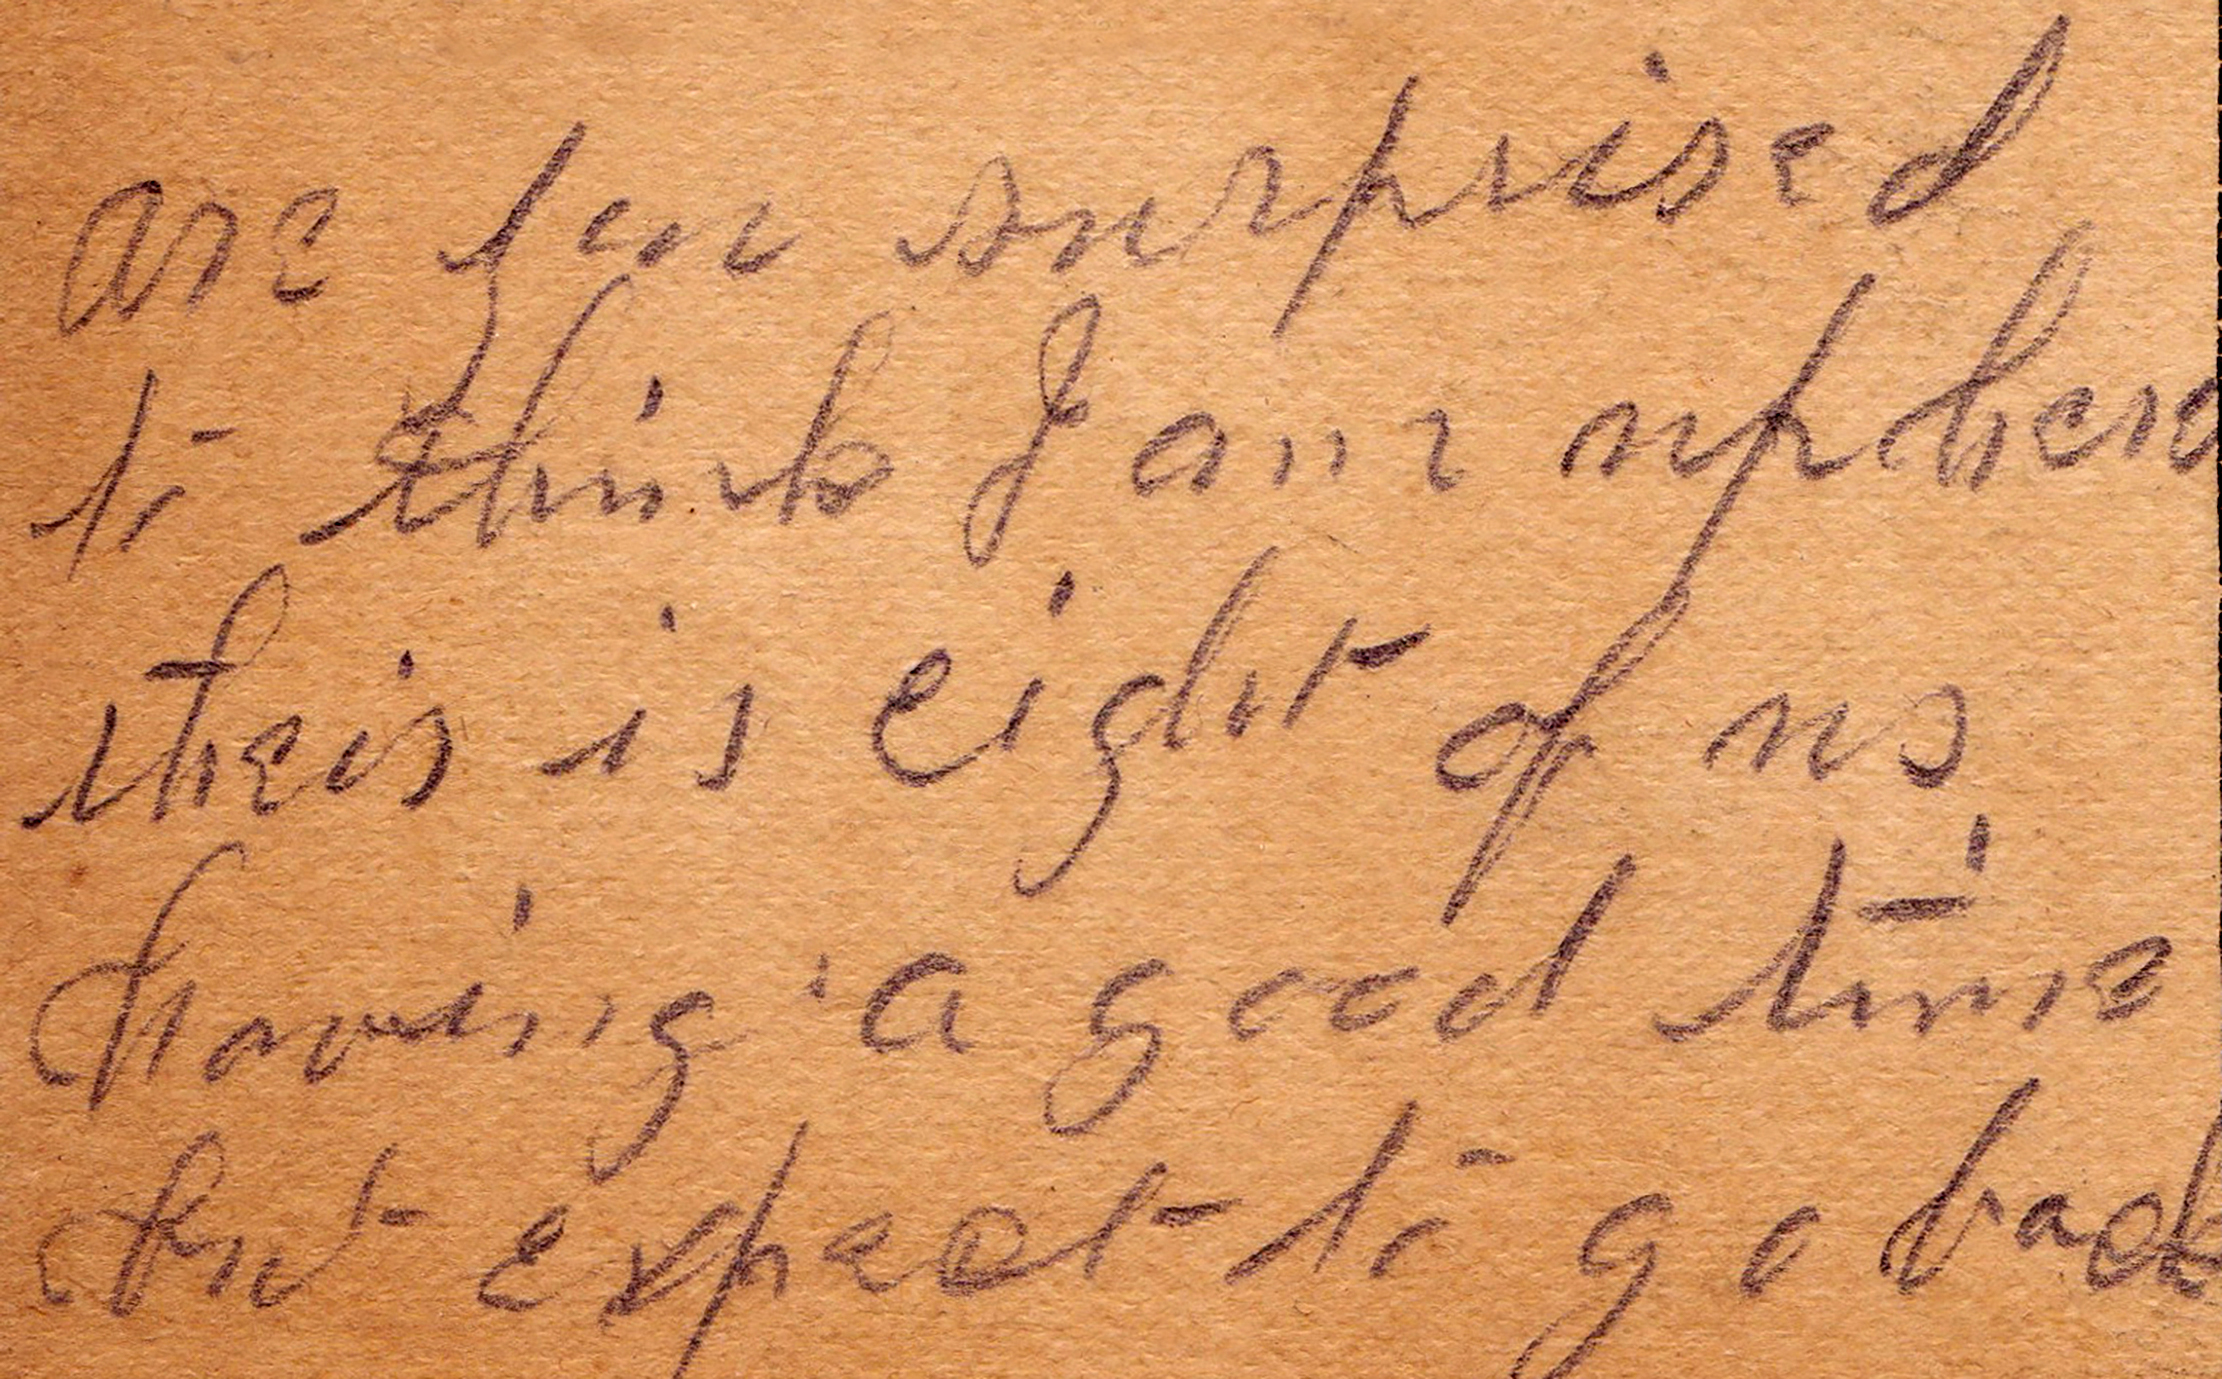 are you surprised
to think I am up here
their is eight of us
having a good time
but expect to go back